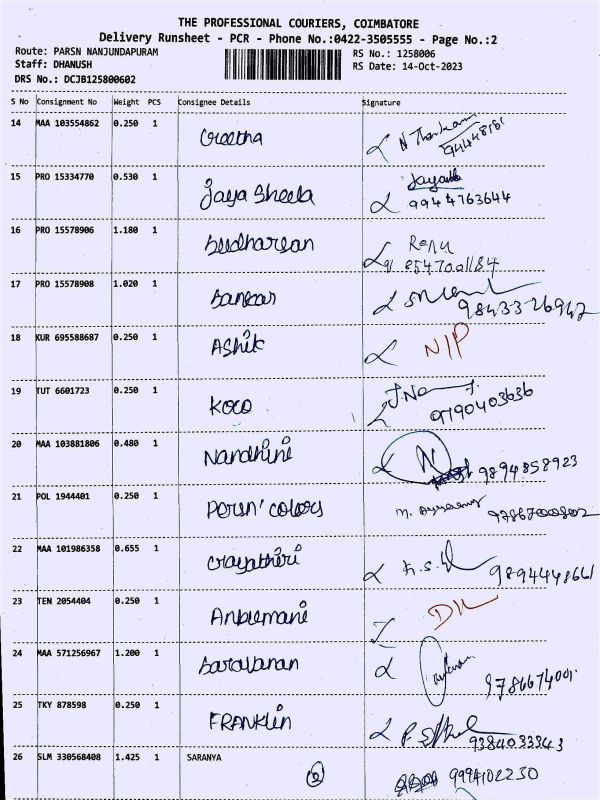 THE PROFESSIONAL COURIERS, COIMBATORE
Delivery Runsheet - PCR - Phone No.:0422-3505555 - Page No.:2
Route: PARSN NANJUNDAPURAM RS No.: 1258006
Staff: DHANUSH RS Date: 14-Oct-2023
DRS No.: DCJB125800602
S No Consignment No Weight PCS Consignee Details Signature
14 MAA 103554862 0.250 1
15 PRO 15334770 0.530 1 Jaya Sheela 9944763644
16 PRO 15578906 1.180 1 Renu
8547001184
17 PRO 15578908 1.020 1 9843326942
18 KUR 695588687 0.250 1 Ashik N/P
19 TUT 6601723 0.250 1 KOCO 9790403636
20 MAA 103881806 0.480 1 Nandhini N 9894858923
21 POL 1944401 0.250 1 colors 9786700802
22 MAA 101986358 0.655 1 Gayathiri K.S. 9894448661
23 TEN 2054404 0.250 1 DIL
24 MAA 571256967 1.200 1 Saravanan
25 TKY 878598 0.250 1 FRANKLIN 9384033343
26 SLM 330568408 1.425 1 SARANYA 9994102230
2